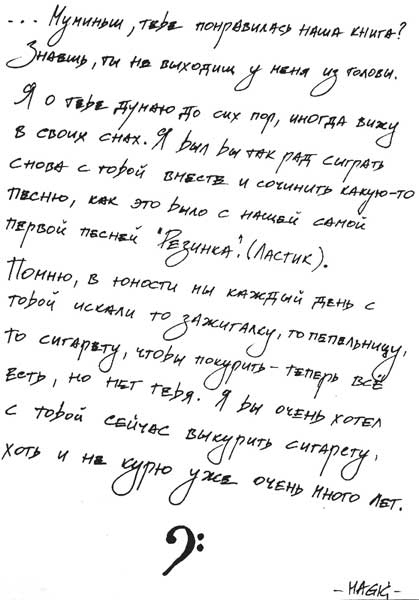 ... Муминыч, тебе понравилась наша книга?
Знаешь, ты не выходиш у меня из головы.
Я о тебе думаю до сих пор, иногда вижу
в своих снах. Я был бы так рад сыграть
снова с тобой вместе и сочинить какую-то
песню, как это было с нашей самой
первой песней "Резинка". (Ластик).
Помню, в юности мы каждый день с
тобой искали то зажигалку, то пепельницу,
то сигарету, чтобы покурить - теперь всё
есть, но нет тебя. Я бы очень хотел
с тобой сейчас выкурить сигарету,
хоть и не курю уже очень много лет.
- MAGIĆ -